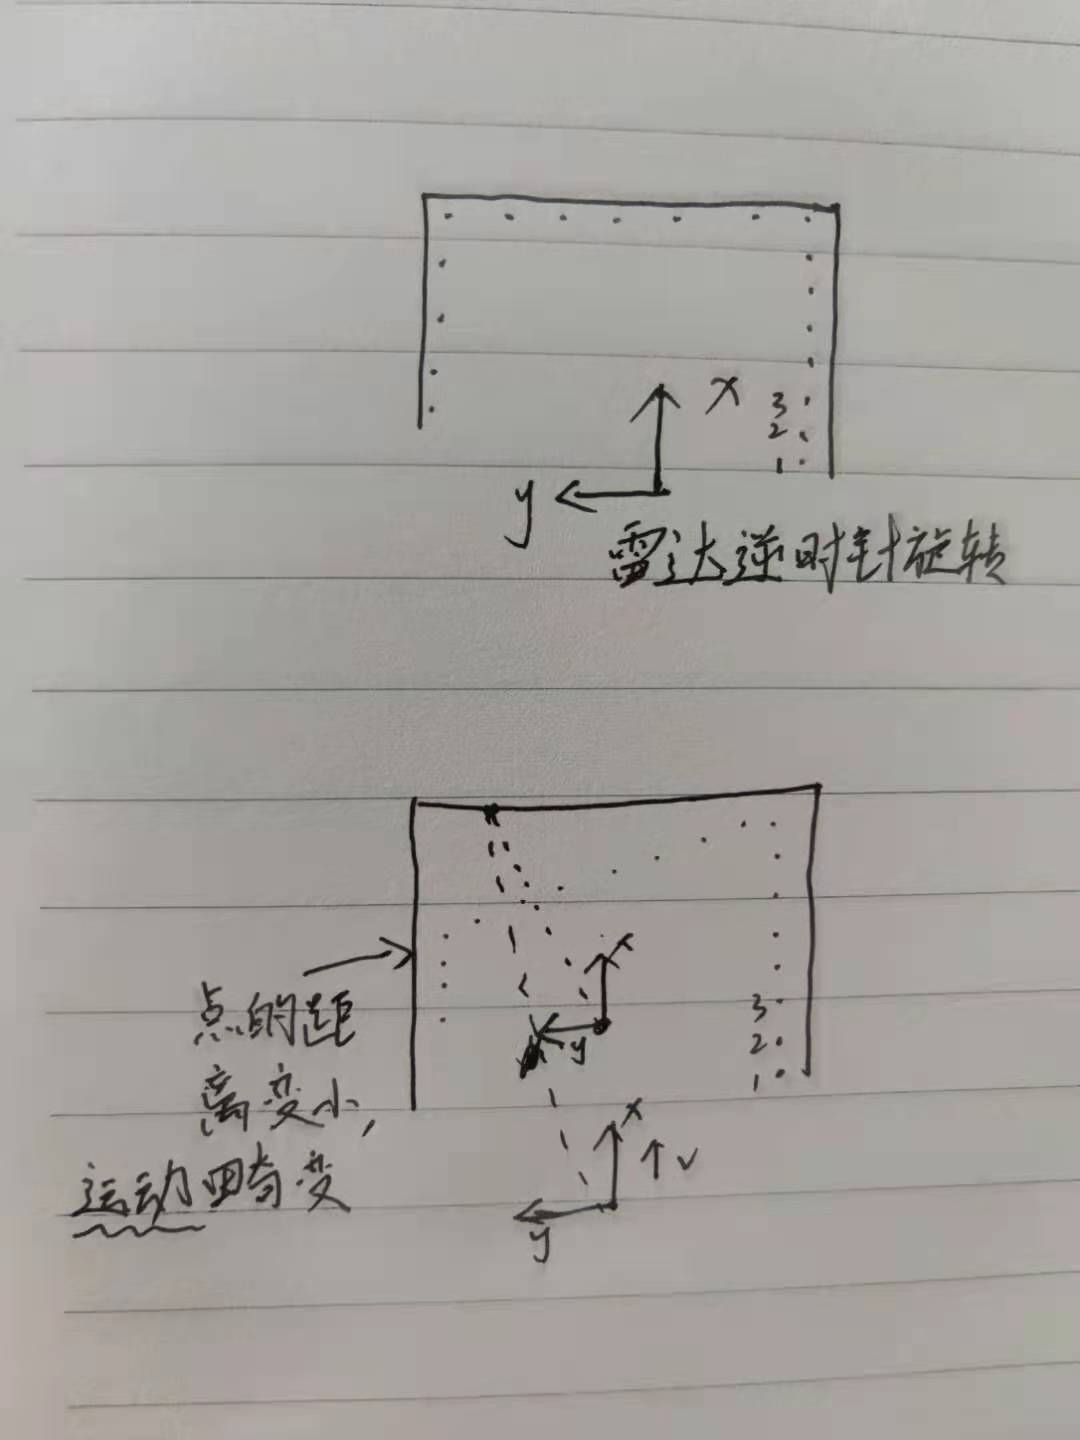 x
3
2
1
y
雷达逆时针旋转
x
y
3
2
1
点的距
离变小,
运动畸变
x
v
y